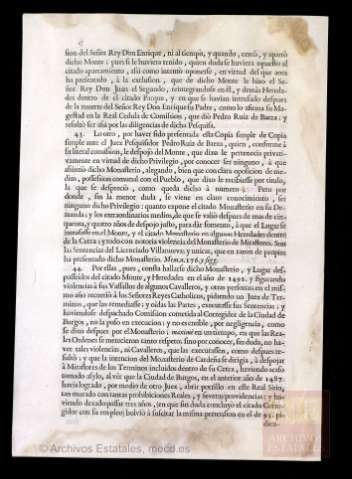 sion del Señor Rey Don Enrique, ni al tiempo, y quando, cercò, y apartò
dicho Monte; pues si le huviera tenido, quien duda se huviera opuesto al
citado apartamiento, assi como intentò oponerse, en virtud del que aora
ha presentado, à la exclusion, que de dicho Monte le hizo el Se-
ñor Rey Don Juan el Segundo, reintegrandose en èl, y demàs Hereda-
des dentro de el citado Parque, y en que se havian intrusado despues
de la muerte del Señor Rey Don Enrique su Padre, como lo afirma su Ma-
gestad en la Real Cedula de Comission, que diò Pedro Ruiz de Barza; y
resultò ser assi por las diligencias de dicho Pesquisa.
43. Lo otro, por haver sido presentada esta Copia simple de Copia
simple ante el Juez Pesquisidor Pedro Ruiz de Barza, quien, conforme à
su literal comission, le despojò del Monte, que dixo le pertenecia privati-
vamente en virtud de dicho Privilegio, por conocer ser ninguno, à que
assintiò dicho Monasterio, alegando, bien que con clara oposicion de me-
dios, possession comunal con el Pueblo, que dixo le recibiesse por titulo,
la que se despreciò, como queda dicho à numero Pero por
donde, sin la menor duda, se viene en claro conocimiento, ser
ninguno dicho Privilegio: quanto expone el citado Monasterio en su De-
manda; y los extraordinarios medios, de que se valiò despues de mas de cin-
quenta, y quatro años de despojo justo, para dàr fomento, à que el Lugar se
intrusasse en el Monte, y el citado Monasterio en algunas Heredades dentro
de la Cerca; y todo con notoria violencia del Monasterio de Miraflores. Son
las Sentencias del Licenciado Villanueva, y unico, que en tantos de propios
ha presentado dicho Monasterio.
44. Por ellas, pues, consta hallarse dicho Monasterio, y Lugar des-
posseidos del citado Monte, y Heredades en el año de 1492. y figurando
violencias à sus Vassallos de algunos Cavalleros, y otras personas, en el mis-
mo año recurriò à los Señores Reyes Catholicos, pidiendo un Juez de Ter-
minos, que las remediasse; y oidas las Partes, executasse sus Sentencias; y
haviendose despachado Comission cometida al Corregidor de la Ciudad de
Burgos, no la puso en execucion; y no es creible, por negligencia, como
se dixo despues por el Monasterio: maximè en un tiempo, en que las Rea-
les Ordenes se merecieron tanto respeto, sino por conocer, sin duda, no ha-
ver tales violencias, ni Cavalleros, que las executassen, como despues re-
sultò; y que la intencion del Monasterio de Cardeña se dirigia, à despojar
à Miraflores de los Terminos incluidos dentro de su Cerca, haviendo acaso
tomado assylo, al vèr que la Ciudad de Burgos, en el anterior año de 1487.
havia logrado, por medio de otro Juez, abrir portillo en este Real Sitio,
tan murado con tantas prohibiciones Reales, y severas providencias; y ha-
viendo dexado passar tres años, (en que sin duda concluyò el citado Corre-
gidor con su empleo) bolviò à suscitar la misma pretension en el de 95. pi-
dien-
© Archivos Estatales, mecd.es
ARCHIVOS ESTATALES